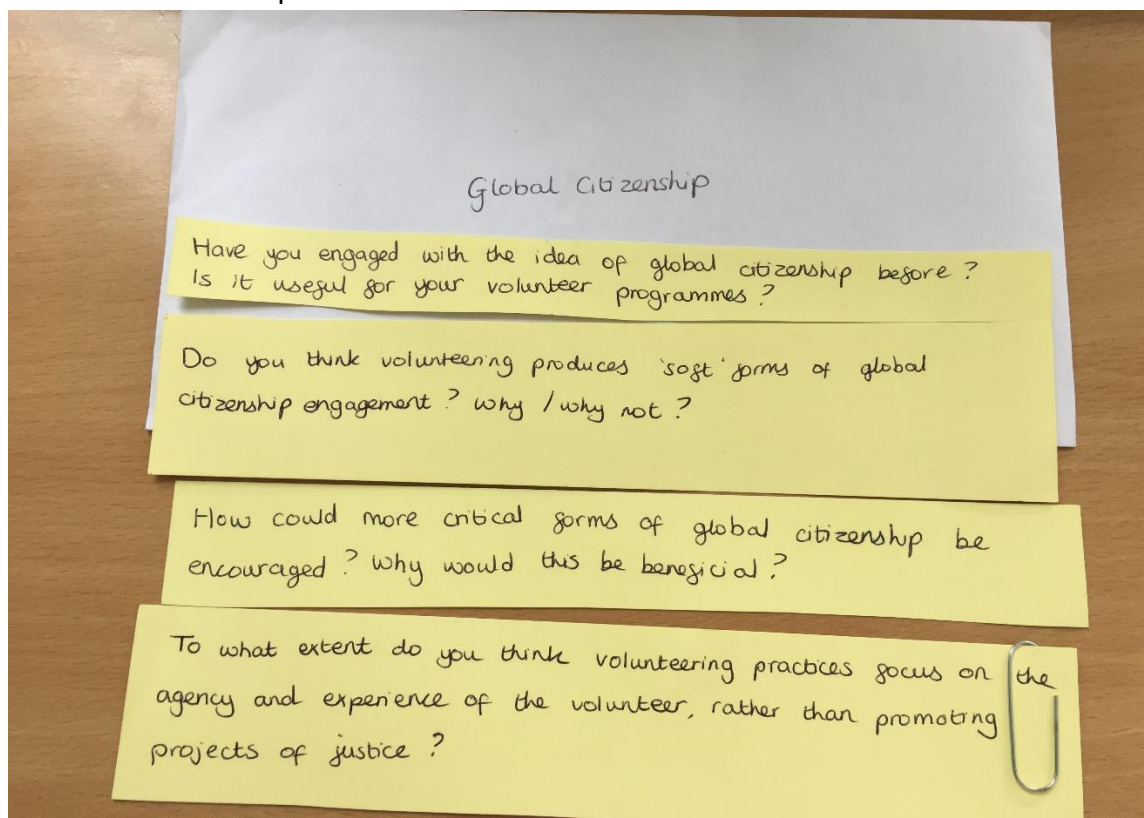 Global Citizenship
Have you engaged with the idea of global citizenship before?
Is it useful for your volunteer programmes?
Do you think volunteering produces 'soft' forms of global
citizenship engagement? why / why not?
How could more critical forms of global citizenship be
encouraged? Why would this be beneficial?
To what extent do you think volunteering practices focus on the
agency and experience of the volunteer, rather than promoting
projects of justice?